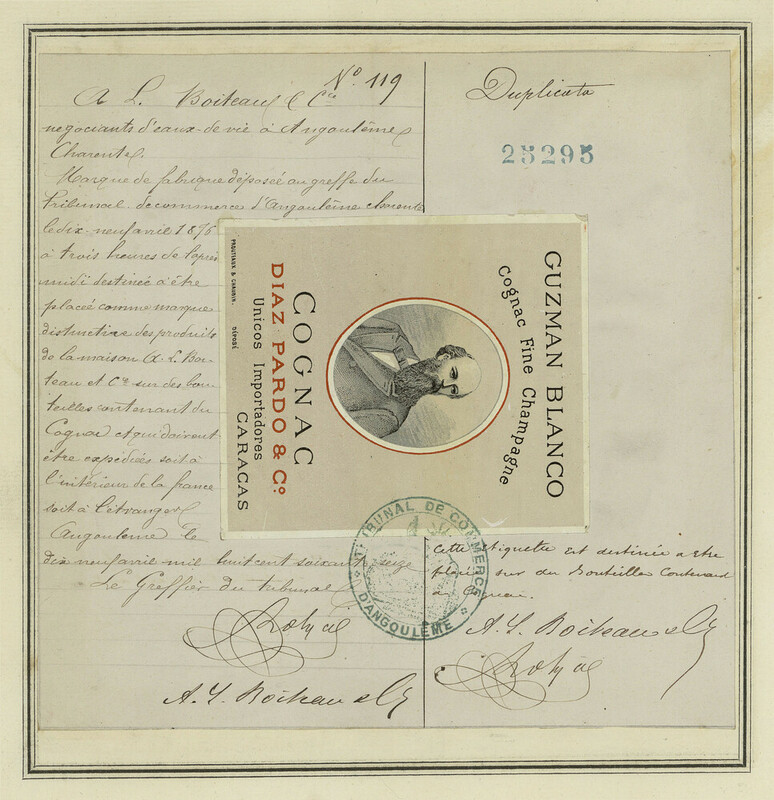 Nº 119
A L. Boiteau & Cie
negociants d'eaux-de-vie à Angoulême
Charente.
Marque de fabrique déposée au greffe du
Tribunal de commerce d'Angoulême charente
le dix-neuf avril 1876
à trois heures de l'après
midi destinée à être
placée comme marque
distinctive des produits
de la maison A. L. Boi-
teau et Cie sur des bou-
teilles contenant du
Cognac et qui doivent
être expédiés soit à
l'intérieur de la france
soit à l'étranger
Angoulême le
dix neuf avril mil huit cent soixante seize
Le Greffier du tribunal
A. L. Boiteau & Cie
Duplicata
25295
GUZMAN BLANCO
Cognac Fine Champagne
COGNAC
DIAZ PARDO & Cº
Unicos Importadores
CARACAS
PROUTEAUX & CHAUVIN.
DÉPOSÉ
TRIBUNAL DE COMMERCE
D'ANGOULÊME
Cette étiquette est destinée a être
sur des bouteilles contenant
du Cognac.
A. L. Boiteau & Cie